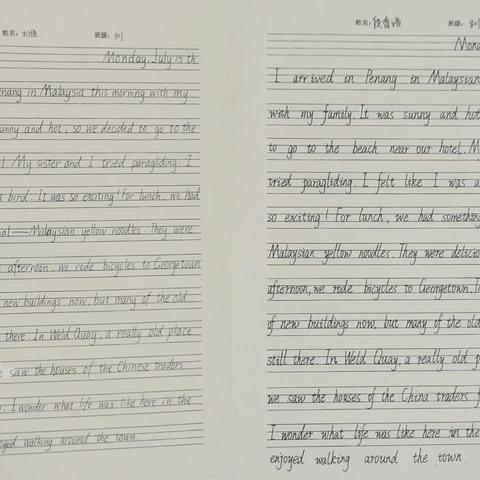 姓名: 刘佳 班级: 811
Monday, July 15 th
nang in Malaysia this morning with my
unny and hot, so we decided to go to the
l. My sister and I tried paragliding. I
a bird. It was so exciting! For lunch, we had
ial — Malaysian yellow noodles. They were
afternoon, we rode bicycles to Georgetown
new buildings now, but many of the old
there. In Weld Quay, a really old place
saw the houses of the Chinese traders
. I wonder what life was like here in the
oyed walking around the town.
姓名: 段香 班级:
Mon
I arrived in Penang in Malaysian
with my family. It was sunny and hot
to go to the beach near our hotel. M
tried paragliding. I felt like I was a
so exciting! For lunch, we had something
Malaysian yellow noodles. They were delicio
afternoon, we rode bicycles to Georgetown.
of new buildings now, but many of the old
still there. In Weld Quay, a really old p
we saw the houses of the China traders f
I wonder what life was like here in the
enjoyed walking around the town.